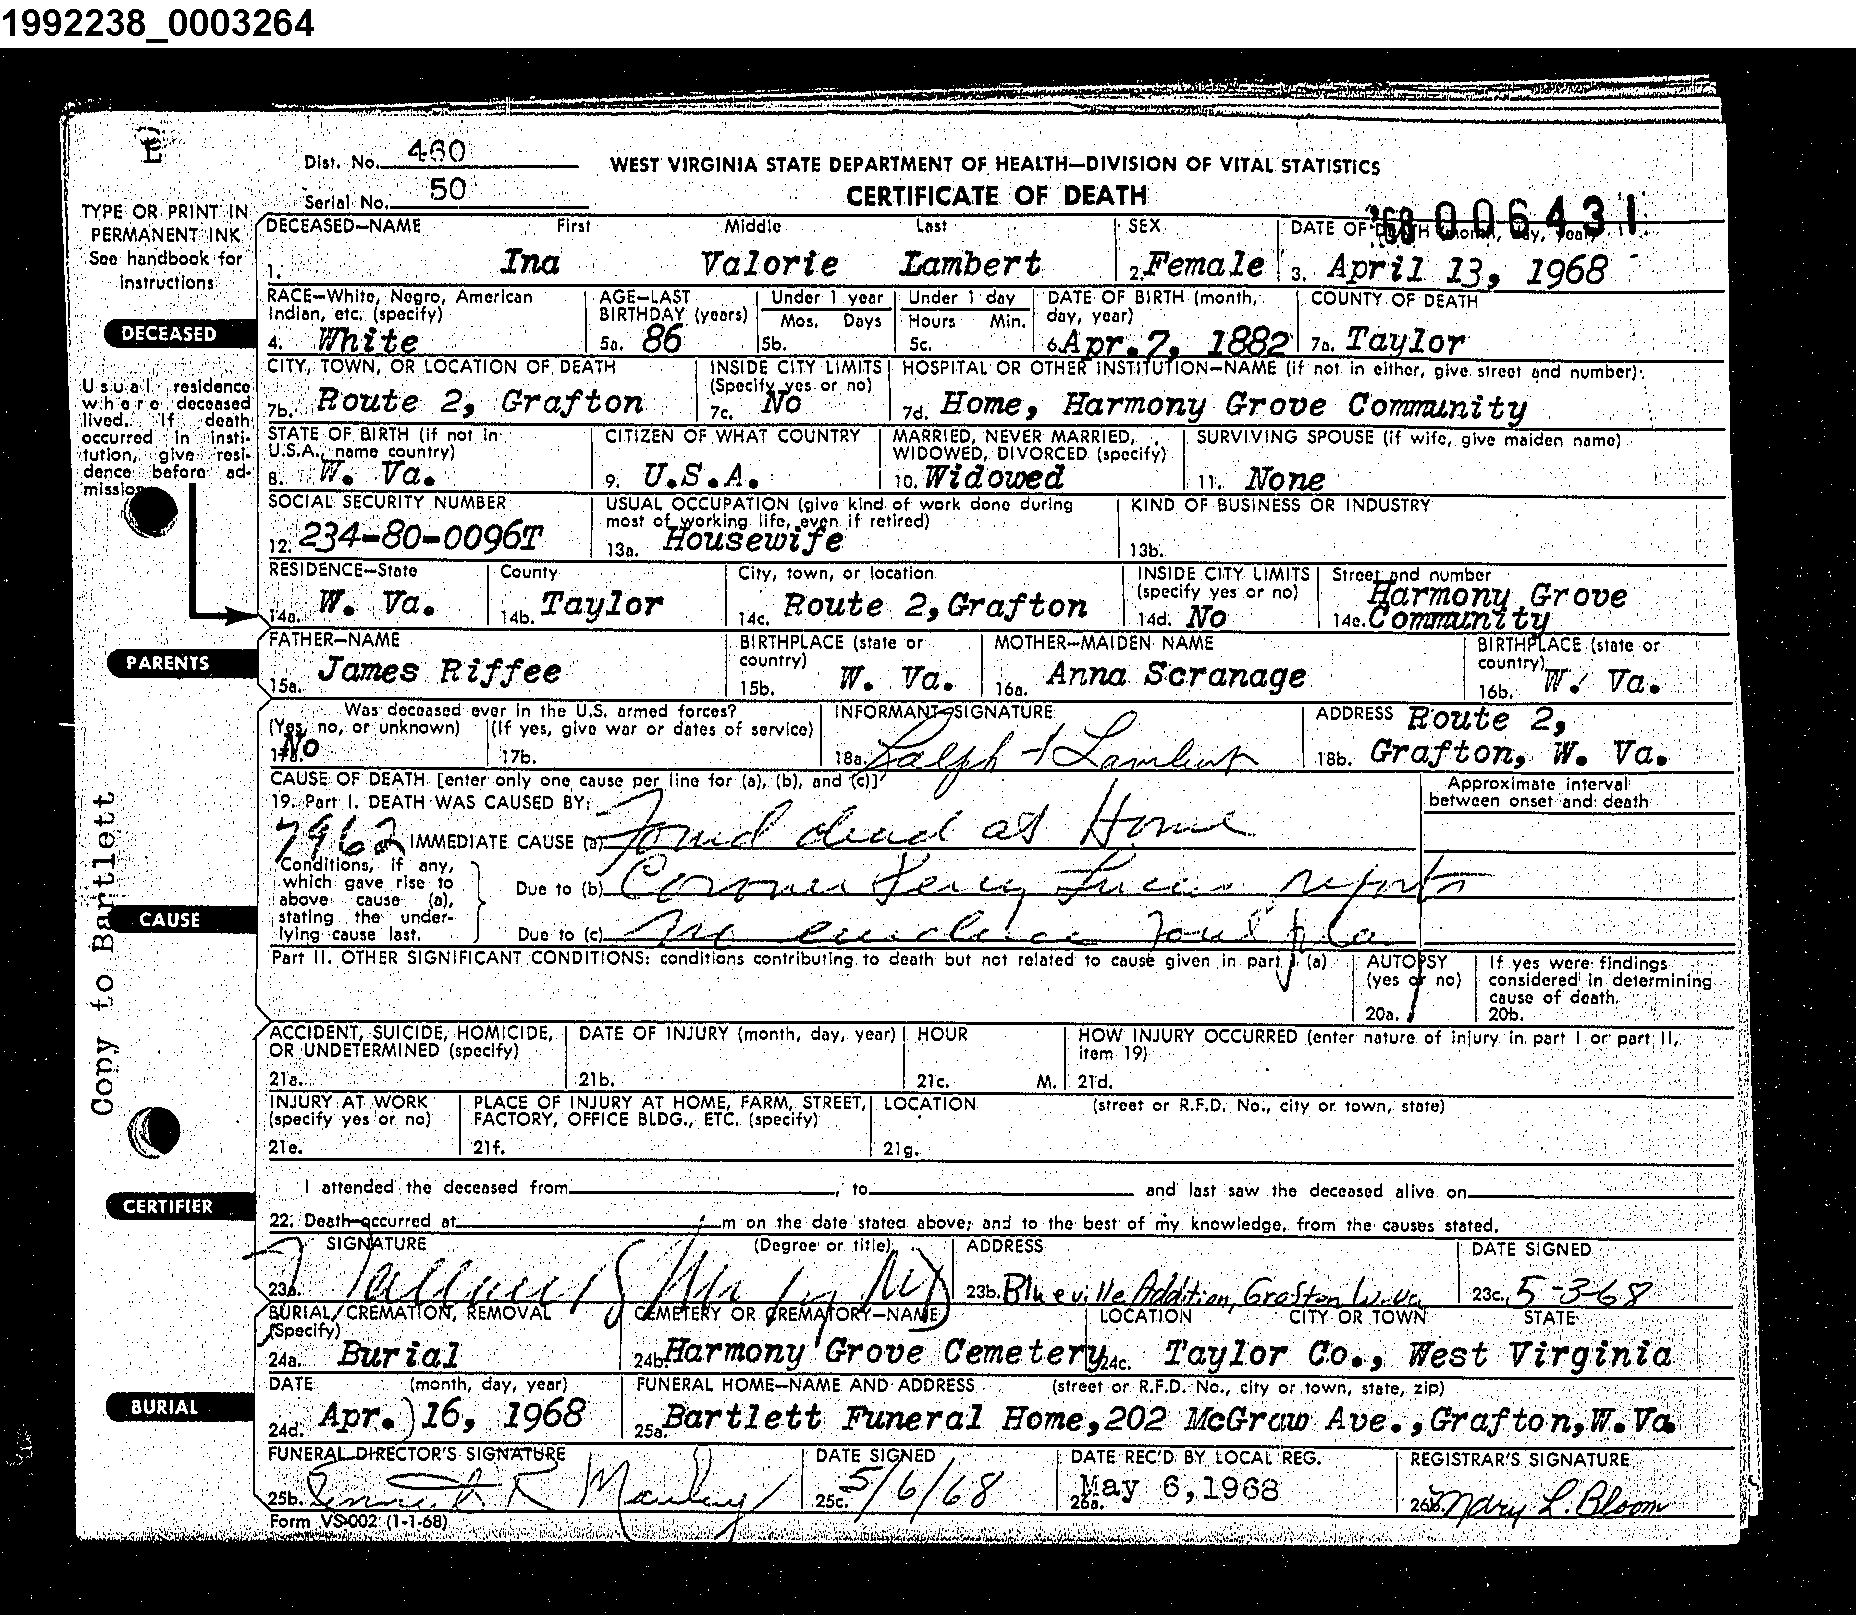 1992238_0003264
E
Dist. No. 460
Serial No. 50
WEST VIRGINIA STATE DEPARTMENT OF HEALTH—DIVISION OF VITAL STATISTICS
CERTIFICATE OF DEATH
'68 006431
TYPE OR PRINT IN
PERMANENT INK
See handbook for
instructions
DECEASED—NAME First Middle Last SEX DATE OF DEATH (month, day, year)
1. Ina Valorie Lambert 2. Female 3. April 13, 1968
DECEASED
RACE—White, Negro, American AGE—LAST Under 1 year Under 1 day DATE OF BIRTH (month, COUNTY OF DEATH
Indian, etc. (specify) BIRTHDAY (years) Mos. Days Hours Min. day, year)
4. White 5a. 86 5b. 5c. 6. Apr. 7, 1882 7a. Taylor
CITY, TOWN, OR LOCATION OF DEATH INSIDE CITY LIMITS HOSPITAL OR OTHER INSTITUTION—NAME (if not in either, give street and number)
(Specify yes or no)
7b. Route 2, Grafton 7c. No 7d. Home, Harmony Grove Community
Usual residence
where deceased
lived. If death
occurred in insti-
tution, give resi-
dence before ad-
mission
STATE OF BIRTH (if not in CITIZEN OF WHAT COUNTRY MARRIED, NEVER MARRIED, SURVIVING SPOUSE (if wife, give maiden name)
U.S.A., name country) WIDOWED, DIVORCED (specify)
8. W. Va. 9. U.S.A. 10. Widowed 11. None
SOCIAL SECURITY NUMBER USUAL OCCUPATION (give kind of work done during KIND OF BUSINESS OR INDUSTRY
most of working life, even if retired)
12. 234-80-0096T 13a. Housewife 13b.
RESIDENCE—State County City, town, or location INSIDE CITY LIMITS Street and number
(specify yes or no) Harmony Grove
14a. W. Va. 14b. Taylor 14c. Route 2, Grafton 14d. No 14e. Community
PARENTS
FATHER—NAME BIRTHPLACE (state or MOTHER—MAIDEN NAME BIRTHPLACE (state or
country) country)
15a. James Riffee 15b. W. Va. 16a. Anna Scranage 16b. W. Va.
Was deceased ever in the U.S. armed forces? INFORMANT—SIGNATURE ADDRESS Route 2,
(Yes, no, or unknown) (If yes, give war or dates of service)
No 17b. 18a. Ralph Lambert 18b. Grafton, W. Va.
CAUSE
CAUSE OF DEATH [enter only one cause per line for (a), (b), and (c)] Approximate interval
19. Part I. DEATH WAS CAUSED BY: between onset and death
7962 IMMEDIATE CAUSE (a) Found dead at Home
Conditions, if any,
which gave rise to
above cause (a),
stating the under-
lying cause last.
Due to (b) Coroner reports
Due to (c) No evidence foul play
Part II. OTHER SIGNIFICANT CONDITIONS: conditions contributing to death but not related to cause given in part I (a) AUTOPSY If yes were findings
(yes or no) considered in determining
cause of death.
20a. 20b.
ACCIDENT, SUICIDE, HOMICIDE, DATE OF INJURY (month, day, year) HOUR HOW INJURY OCCURRED (enter nature of injury in part I or part II,
OR UNDETERMINED (specify) item 19)
21a. 21b. 21c. M. 21d.
INJURY AT WORK PLACE OF INJURY AT HOME, FARM, STREET, LOCATION (street or R.F.D. No., city or town, state)
(specify yes or no) FACTORY, OFFICE BLDG., ETC. (specify)
21e. 21f. 21g.
Copy to Bartlett
CERTIFIER
I attended the deceased from , to and last saw the deceased alive on
22. Death occurred at m on the date stated above; and to the best of my knowledge, from the causes stated.
SIGNATURE (Degree or title) ADDRESS DATE SIGNED
23a. MD 23b. Blueville Addition, Grafton W.Va. 23c. 5-3-68
BURIAL
BURIAL, CREMATION, REMOVAL CEMETERY OR CREMATORY—NAME LOCATION CITY OR TOWN STATE
(Specify)
24a. Burial 24b. Harmony Grove Cemetery 24c. Taylor Co., West Virginia
DATE (month, day, year) FUNERAL HOME—NAME AND ADDRESS (street or R.F.D. No., city or town, state, zip)
24d. Apr. 16, 1968 25a. Bartlett Funeral Home, 202 McGraw Ave., Grafton, W.Va
FUNERAL DIRECTOR'S SIGNATURE DATE SIGNED DATE REC'D BY LOCAL REG. REGISTRAR'S SIGNATURE
25b. 25c. 5/6/68 26a. May 6, 1968 26b. Mary L. Bloom
Form VS-002 (1-1-68)